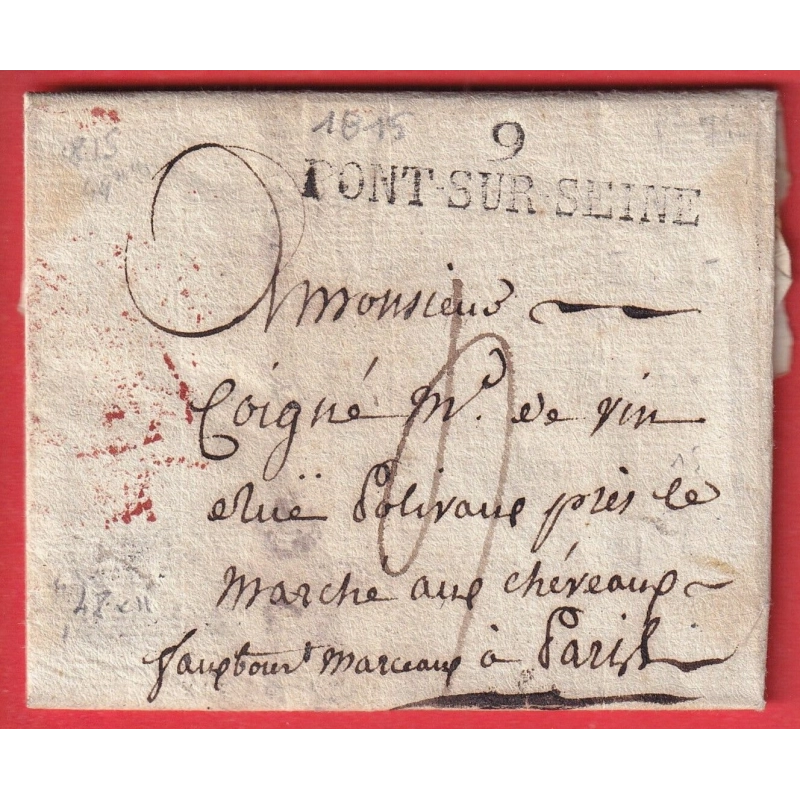 1815
9
PONT-SUR-SEINE
1815
Monsieur
Coigné Md. de vin
eRuë Polivaux près le
Marché aux chéveaux
fauxbourt Marceaux à Paris